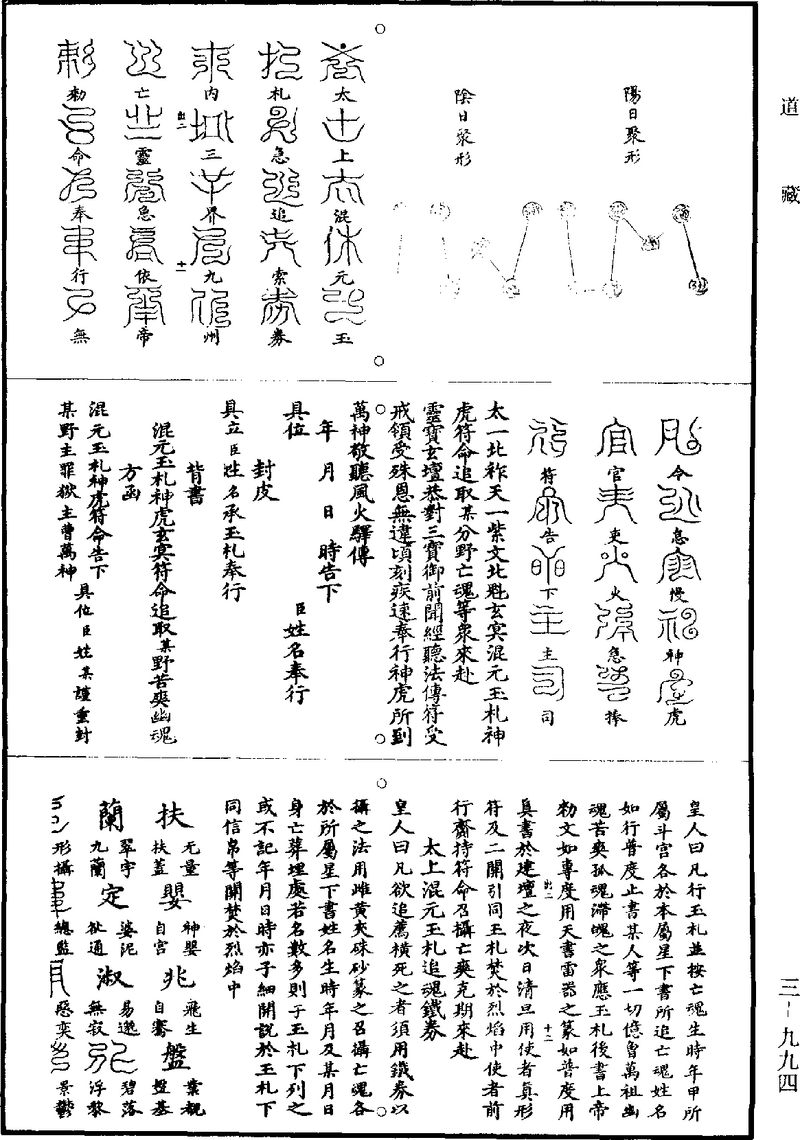 道藏
陽日聚形
陰日聚形
太上混元玉
札急追索券
內三界九州
亡靈急依帝
勑命奉行無
令急慢神虎
官吏火急捧
符告下主司
太一北祚天一紫文北魁玄冥混元玉札神
虎符命追取某分野亡魂等衆來赴
靈寶玄壇恭對三寶御前聞經聽法傳符受
戒領受殊恩無違頃刻疾速奉行神虎所到
萬神敬聽風火驛傳
年月日時告下
具位 臣姓名奉行
封皮
具立臣姓名承玉札奉行
背書
混元玉札神虎玄冥符命追取某野苦爽幽魂
方函
混元玉札神虎符命告下
具位臣姓某謹重封
某野主罪獄主曹萬神
皇人曰凡行玉札並按亡魂生時年甲所
屬斗宮各於本屬星下書所追亡魂姓名
如行普度止書某人等一切億曾萬祖幽
魂苦爽孤魂滯魄之衆應玉札後書上帝
勑文如專度用天書雷器之篆如普度用
真書於建壇之夜次日清旦用使者真形
符及二關引同玉札焚於烈焰中使者前
行齎持符命召攝亡爽克期來赴
太上混元玉札追魂鐵券
皇人曰凡欲追薦橫死之者須用鐵券以
攝之法用雌黃夾硃砂篆之召攝亡魂各
於所屬星下書姓名生時年月及某月日
身亡葬埋處若名數多則于玉札下列之
或不記年月日時亦子細開說於玉札下
同信帛等關焚於烈焰中
无量 神嬰 飛生 業覩
扶 嬰 兆 盤
扶蓋 自宮 自騫 盤基
翠宇 婆泥 易邈 碧落
蘭 定 淑
九蘭 祉通 無寂 浮黎
形攝 總監 惡奕 景鬱
三一九九四